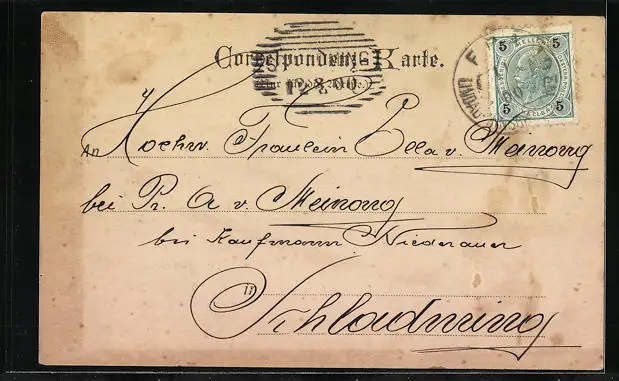 Correspondenz-Karte.
12 8 00
5 5
5 5
An Hochw. Fräulein Ella v. Meinong
bei Pr. A v. Meinong
bei Kaufmann Niederauer
in Schladming